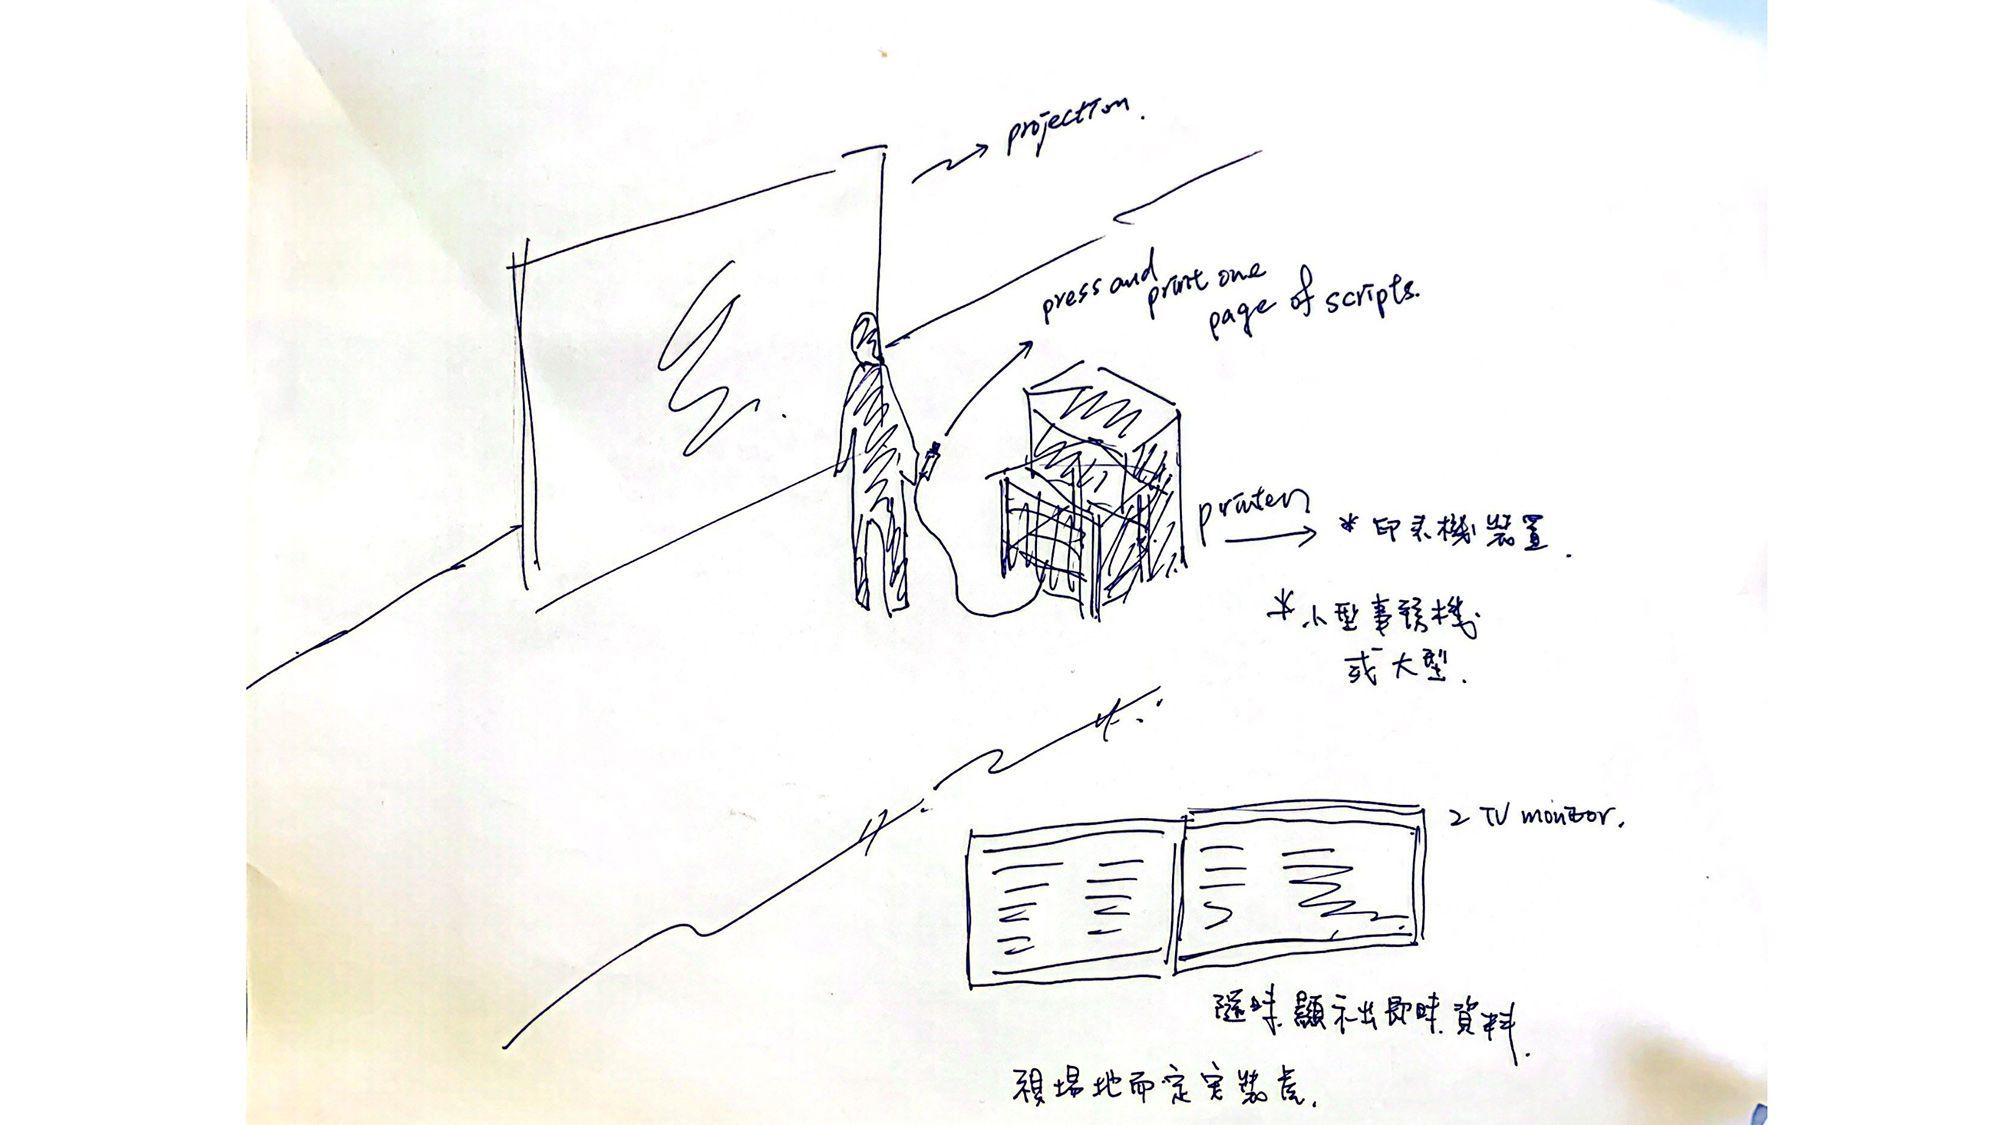 projection.
press and
print one
page of scripts.
printer
* 印表機裝置.
* 小型事務機
或大型.
2 TV monitor.
隨時顯示出即時資料.
視場地而定